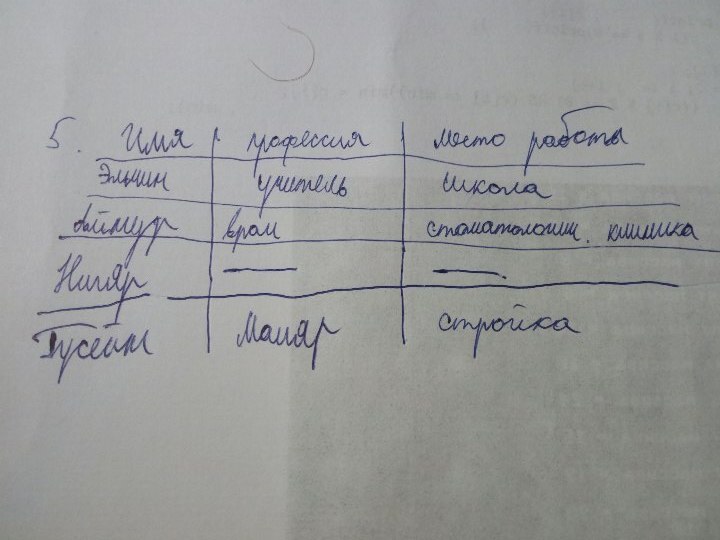 5. Имя профессия место работы
Эльчин учитель школа
Аймур врач стоматологич. клиника
Нигяр — —
Гусейн Маляр стройка